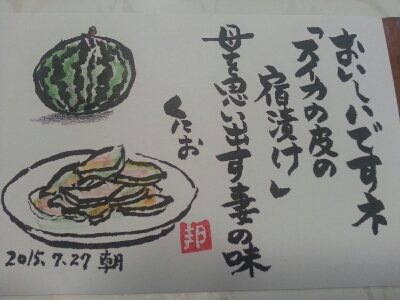 おいしいですネ
「スイカの皮の
宿漬け」
母を思い出す妻の味
くにお
邦
2015.7.27 朝